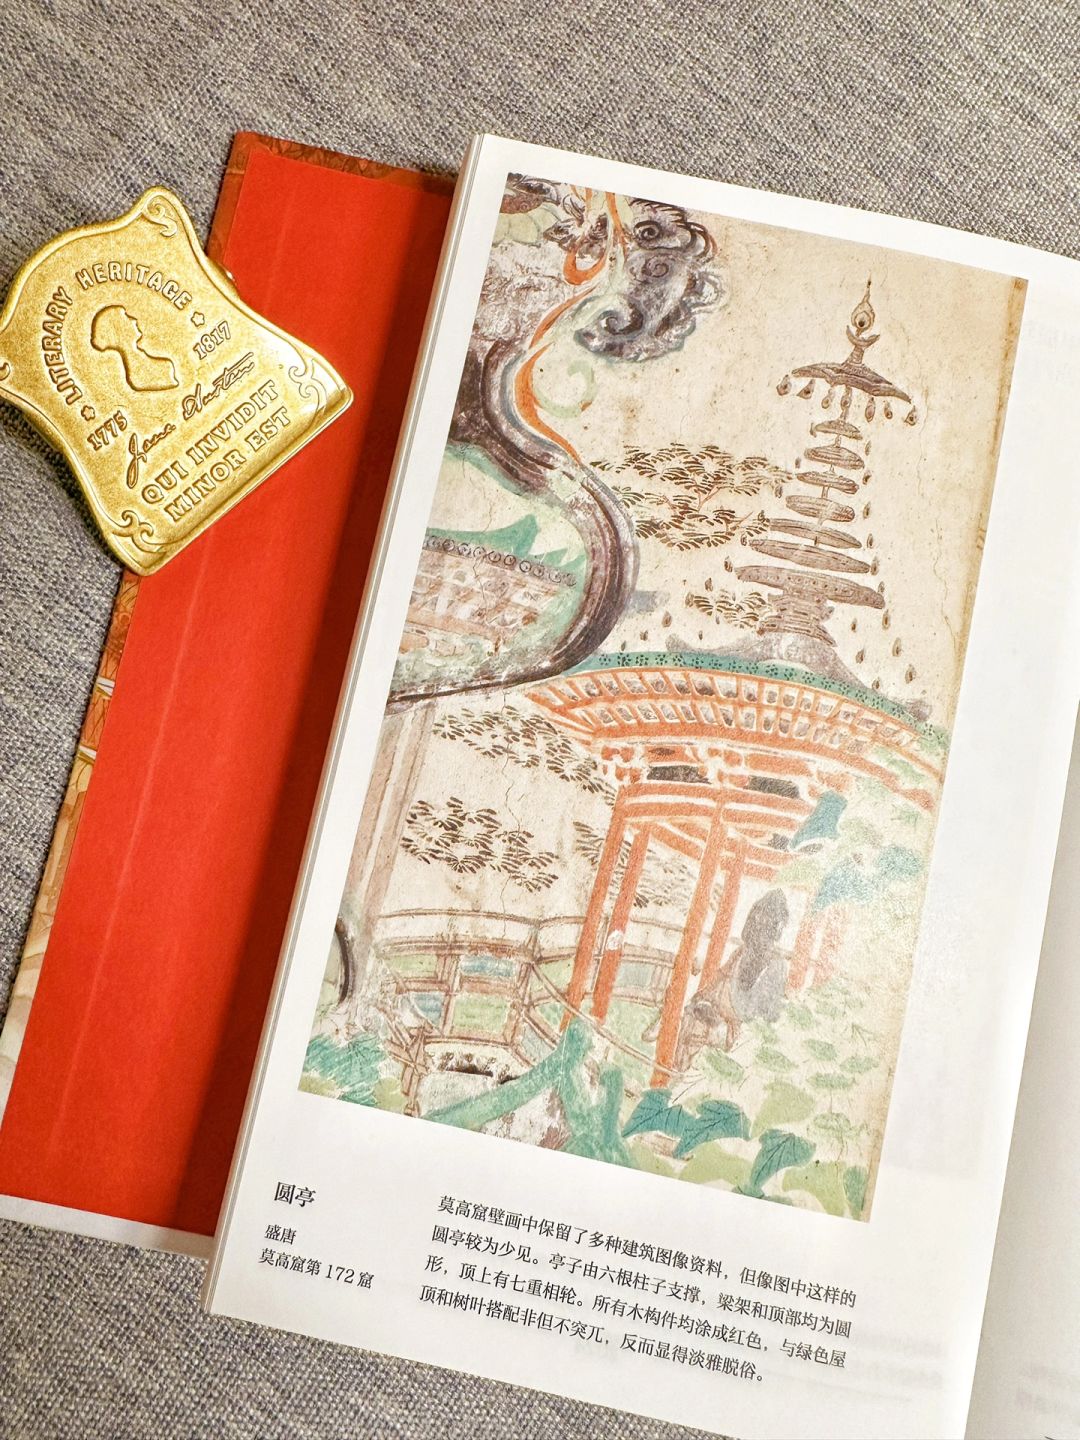 ★ LITERARY HERITAGE ★
1775
1817
Jane Austen
QUI INVIDIT
MINOR EST
圆亭
盛唐
莫高窟第 172 窟
莫高窟壁画中保留了多种建筑图像资料，但像图中这样的
圆亭较为少见。亭子由六根柱子支撑，梁架和顶部均为圆
形，顶上有七重相轮。所有木构件均涂成红色，与绿色屋
顶和树叶搭配非但不突兀，反而显得淡雅脱俗。